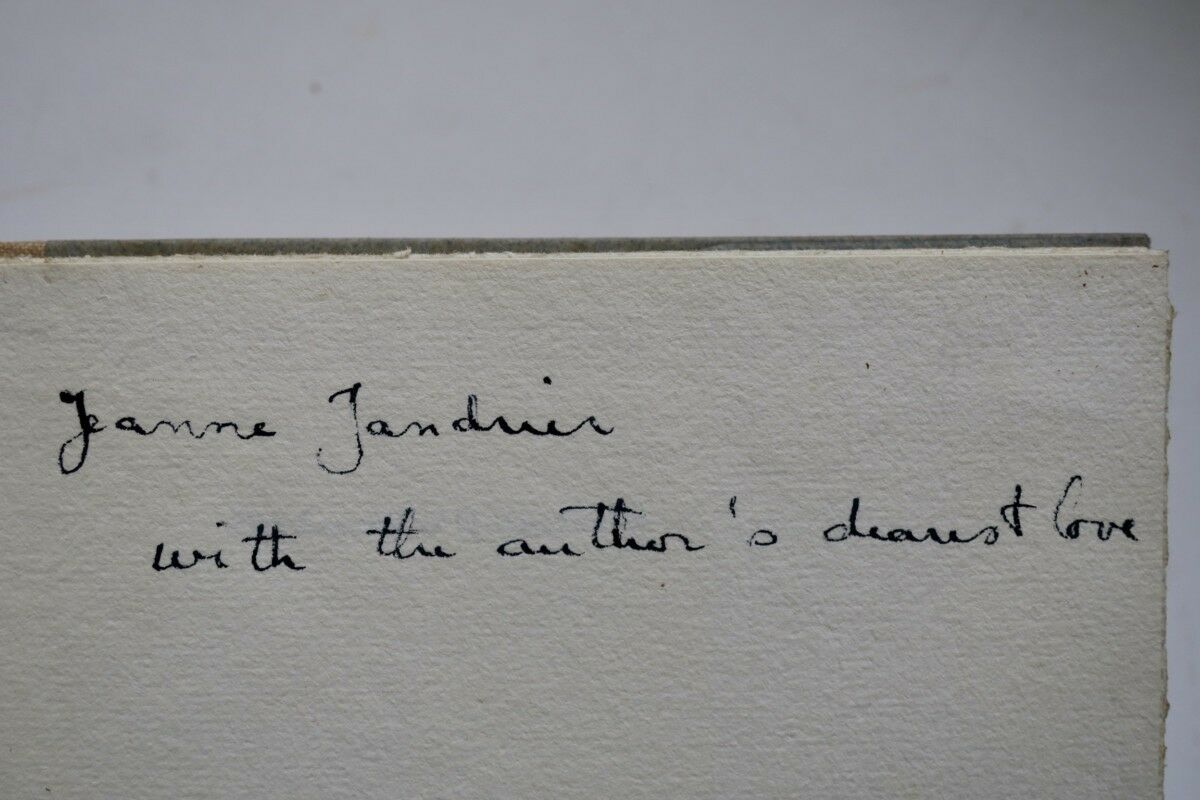 Jeanne Jandrier
with the author's dearest love